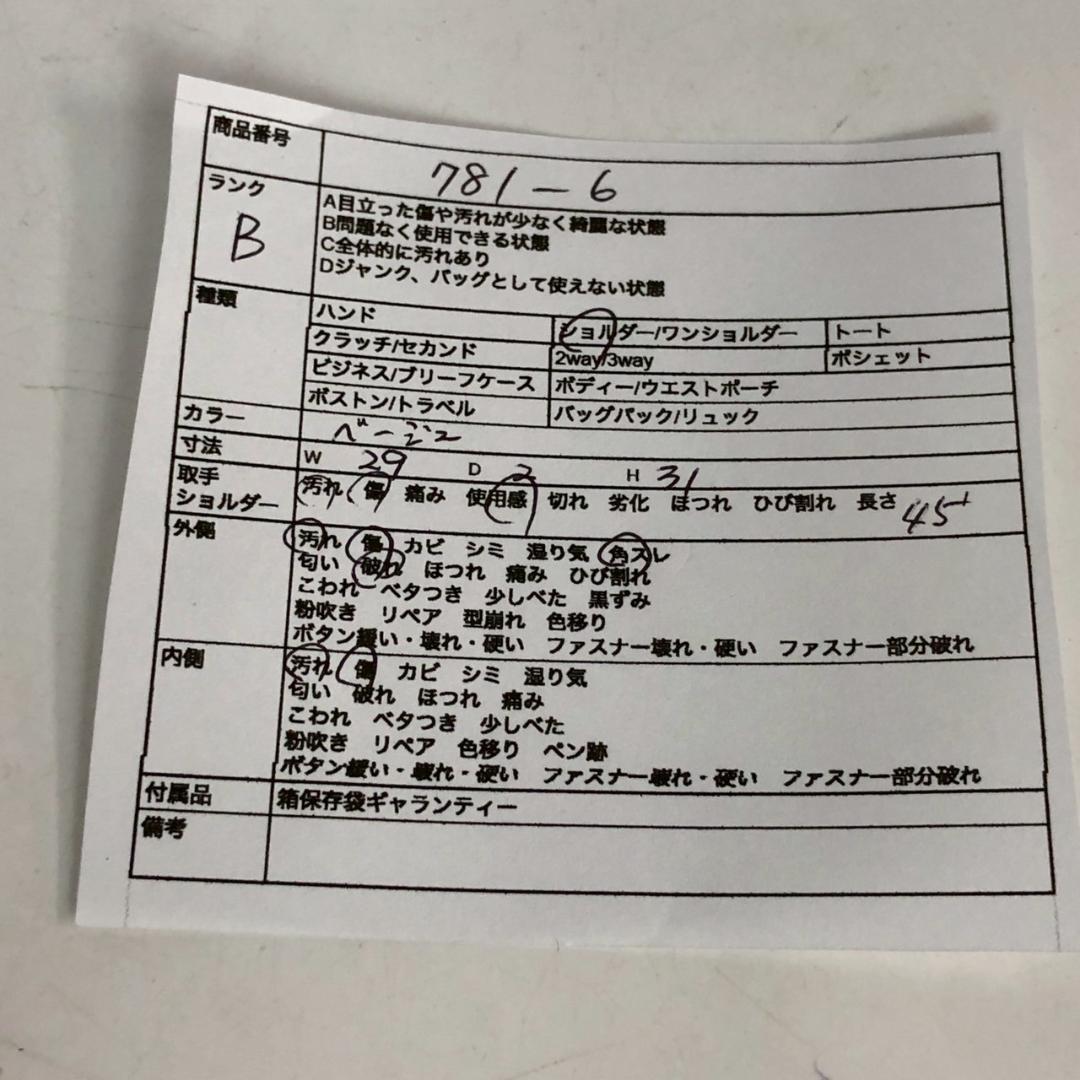 商品番号 781-6
ランク B
A目立った傷や汚れが少なく綺麗な状態
B問題なく使用できる状態
C全体的に汚れあり
Dジャンク、バッグとして使えない状態
種類
ハンド ショルダー/ワンショルダー トート
クラッチ/セカンド 2way/3way ポシェット
ビジネス/ブリーフケース ボディー/ウエストポーチ
ボストン/トラベル バッグパック/リュック
カラー ベージュ
寸法 W 29 D 2 H 31
取手
ショルダー 汚れ 傷 痛み 使用感 切れ 劣化 ほつれ ひび割れ 長さ 45
外側 汚れ 傷 カビ シミ 湿り気 角スレ
匂い 破れ ほつれ 痛み ひび割れ
こわれ ベタつき 少しべた 黒ずみ
粉吹き リペア 型崩れ 色移り
ボタン緩い・壊れ・硬い ファスナー壊れ・硬い ファスナー部分破れ
内側 汚れ 傷 カビ シミ 湿り気
匂い 破れ ほつれ 痛み
こわれ ベタつき 少しべた
粉吹き リペア 色移り ペン跡
ボタン緩い・壊れ・硬い ファスナー壊れ・硬い ファスナー部分破れ
付属品 箱保存袋ギャランティー
備考